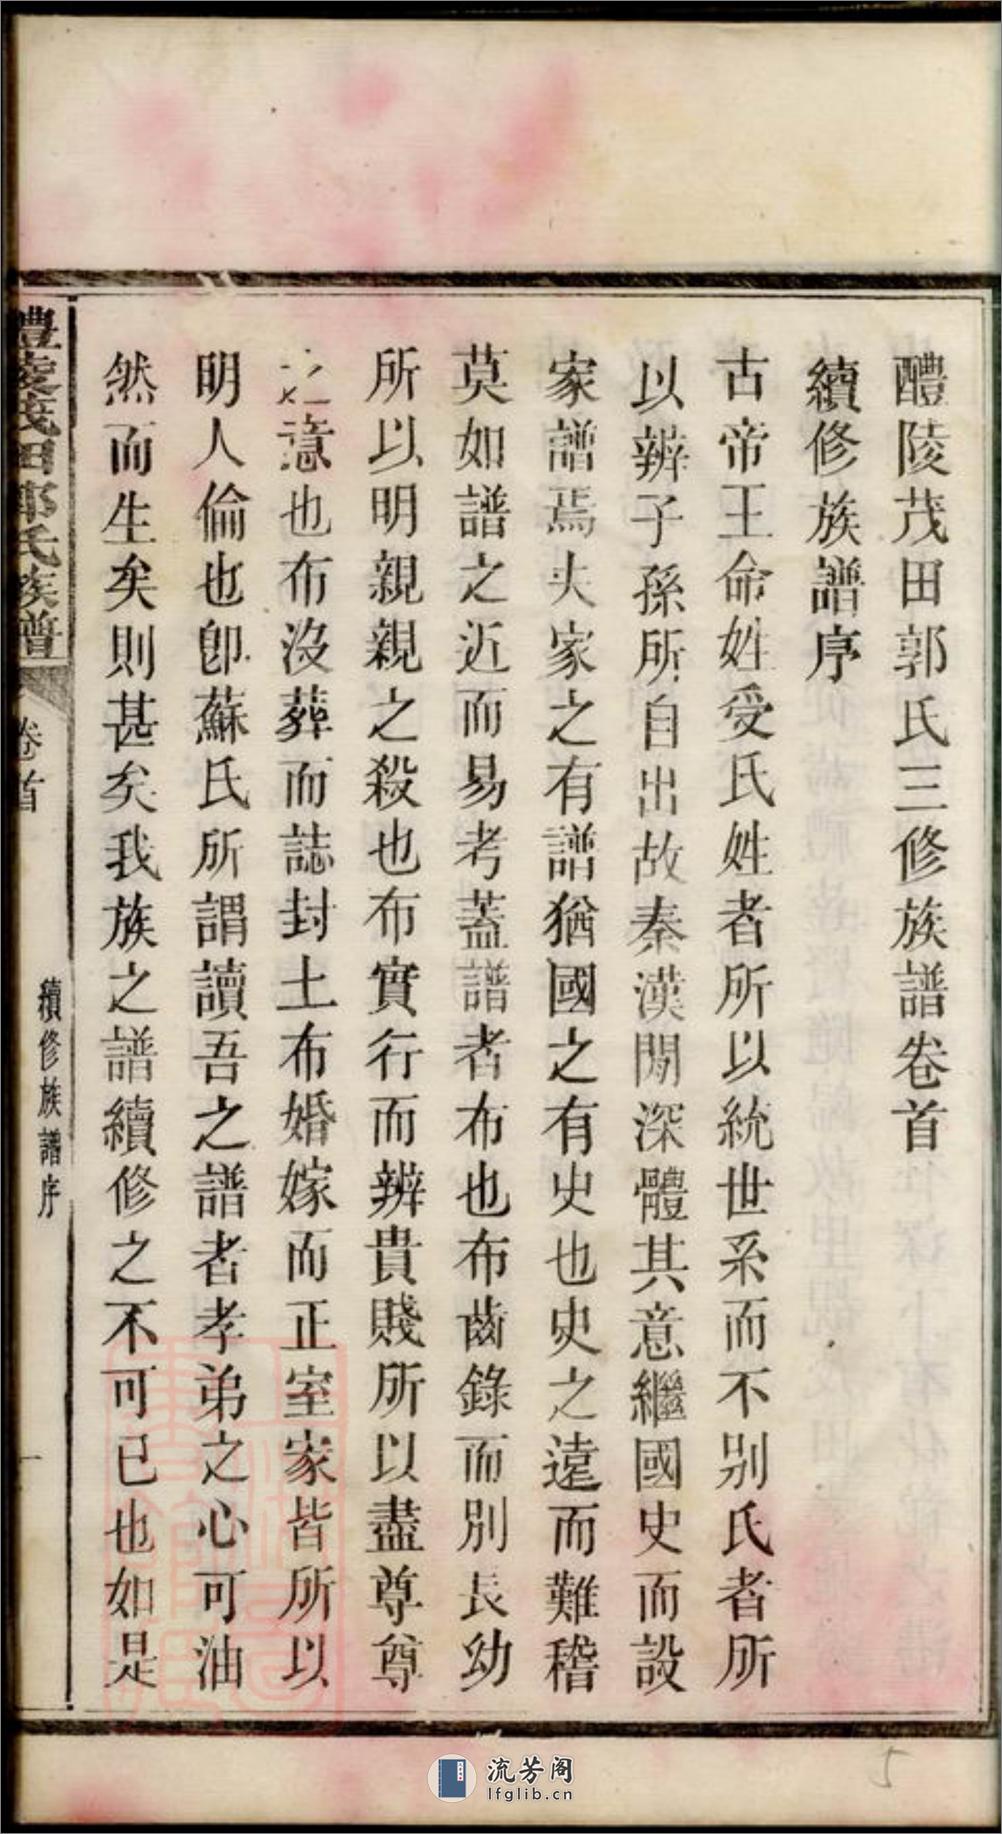 醴陵茂田郭氏三修族譜卷首
續修族譜序
古帝王命姓受氏姓者所以統世系而不别氏者所
以辨子孫所自出故秦漢間深體其意繼國史而設
家譜焉夫家之有譜猶國之有史也史之遠而難稽
莫如譜之近而易考蓋譜者布也布齒錄而別長幼
所以明親親之殺也布實行而辨貴賤所以盡尊尊
之意也布沒葬而誌封土布婚嫁而正室家皆所以
明人倫也卽蘇氏所謂讀吾之譜者孝弟之心可油
然而生矣則甚矣我族之譜續修之不可已也如是
醴陵茂田郭氏族譜
卷首
續修族譜序
一
5
流芳阁
lfglib.cn